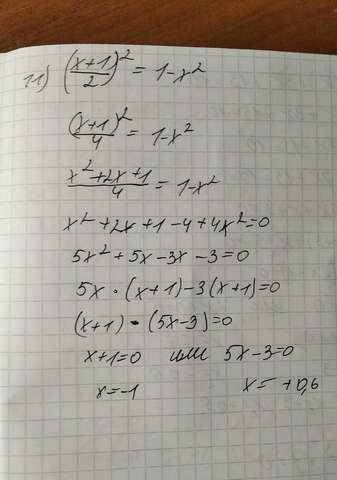 11) ((x+1)/2)² = 1-x²
(x+1)²/4 = 1-x²
x²+2x+1/4 = 1-x²
x²+2x+1-4+4x²=0
5x²+5x-3x-3=0
5x·(x+1)-3(x+1)=0
(x+1)·(5x-3)=0
x+1=0 или 5x-3=0
x=-1 x=+0,6